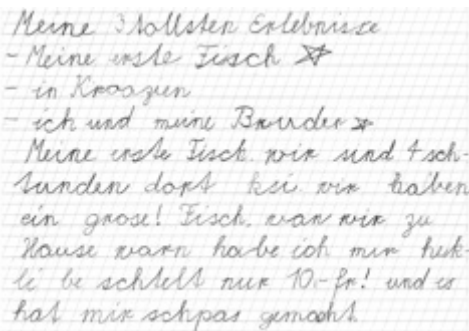 Meine 3 tollsten Erlebnisse
- Meine erste Fisch
- in Kroazien
- ich und meine Bruder
Meine erste Fisch. wir sind 4 sch-
tunden dort ksi. wir haben
ein grose! Fisch. wan wir zu
Hause warn habe ich mir
be schtelt nur 10.-fr! und es
hat mir schpas gemacht.